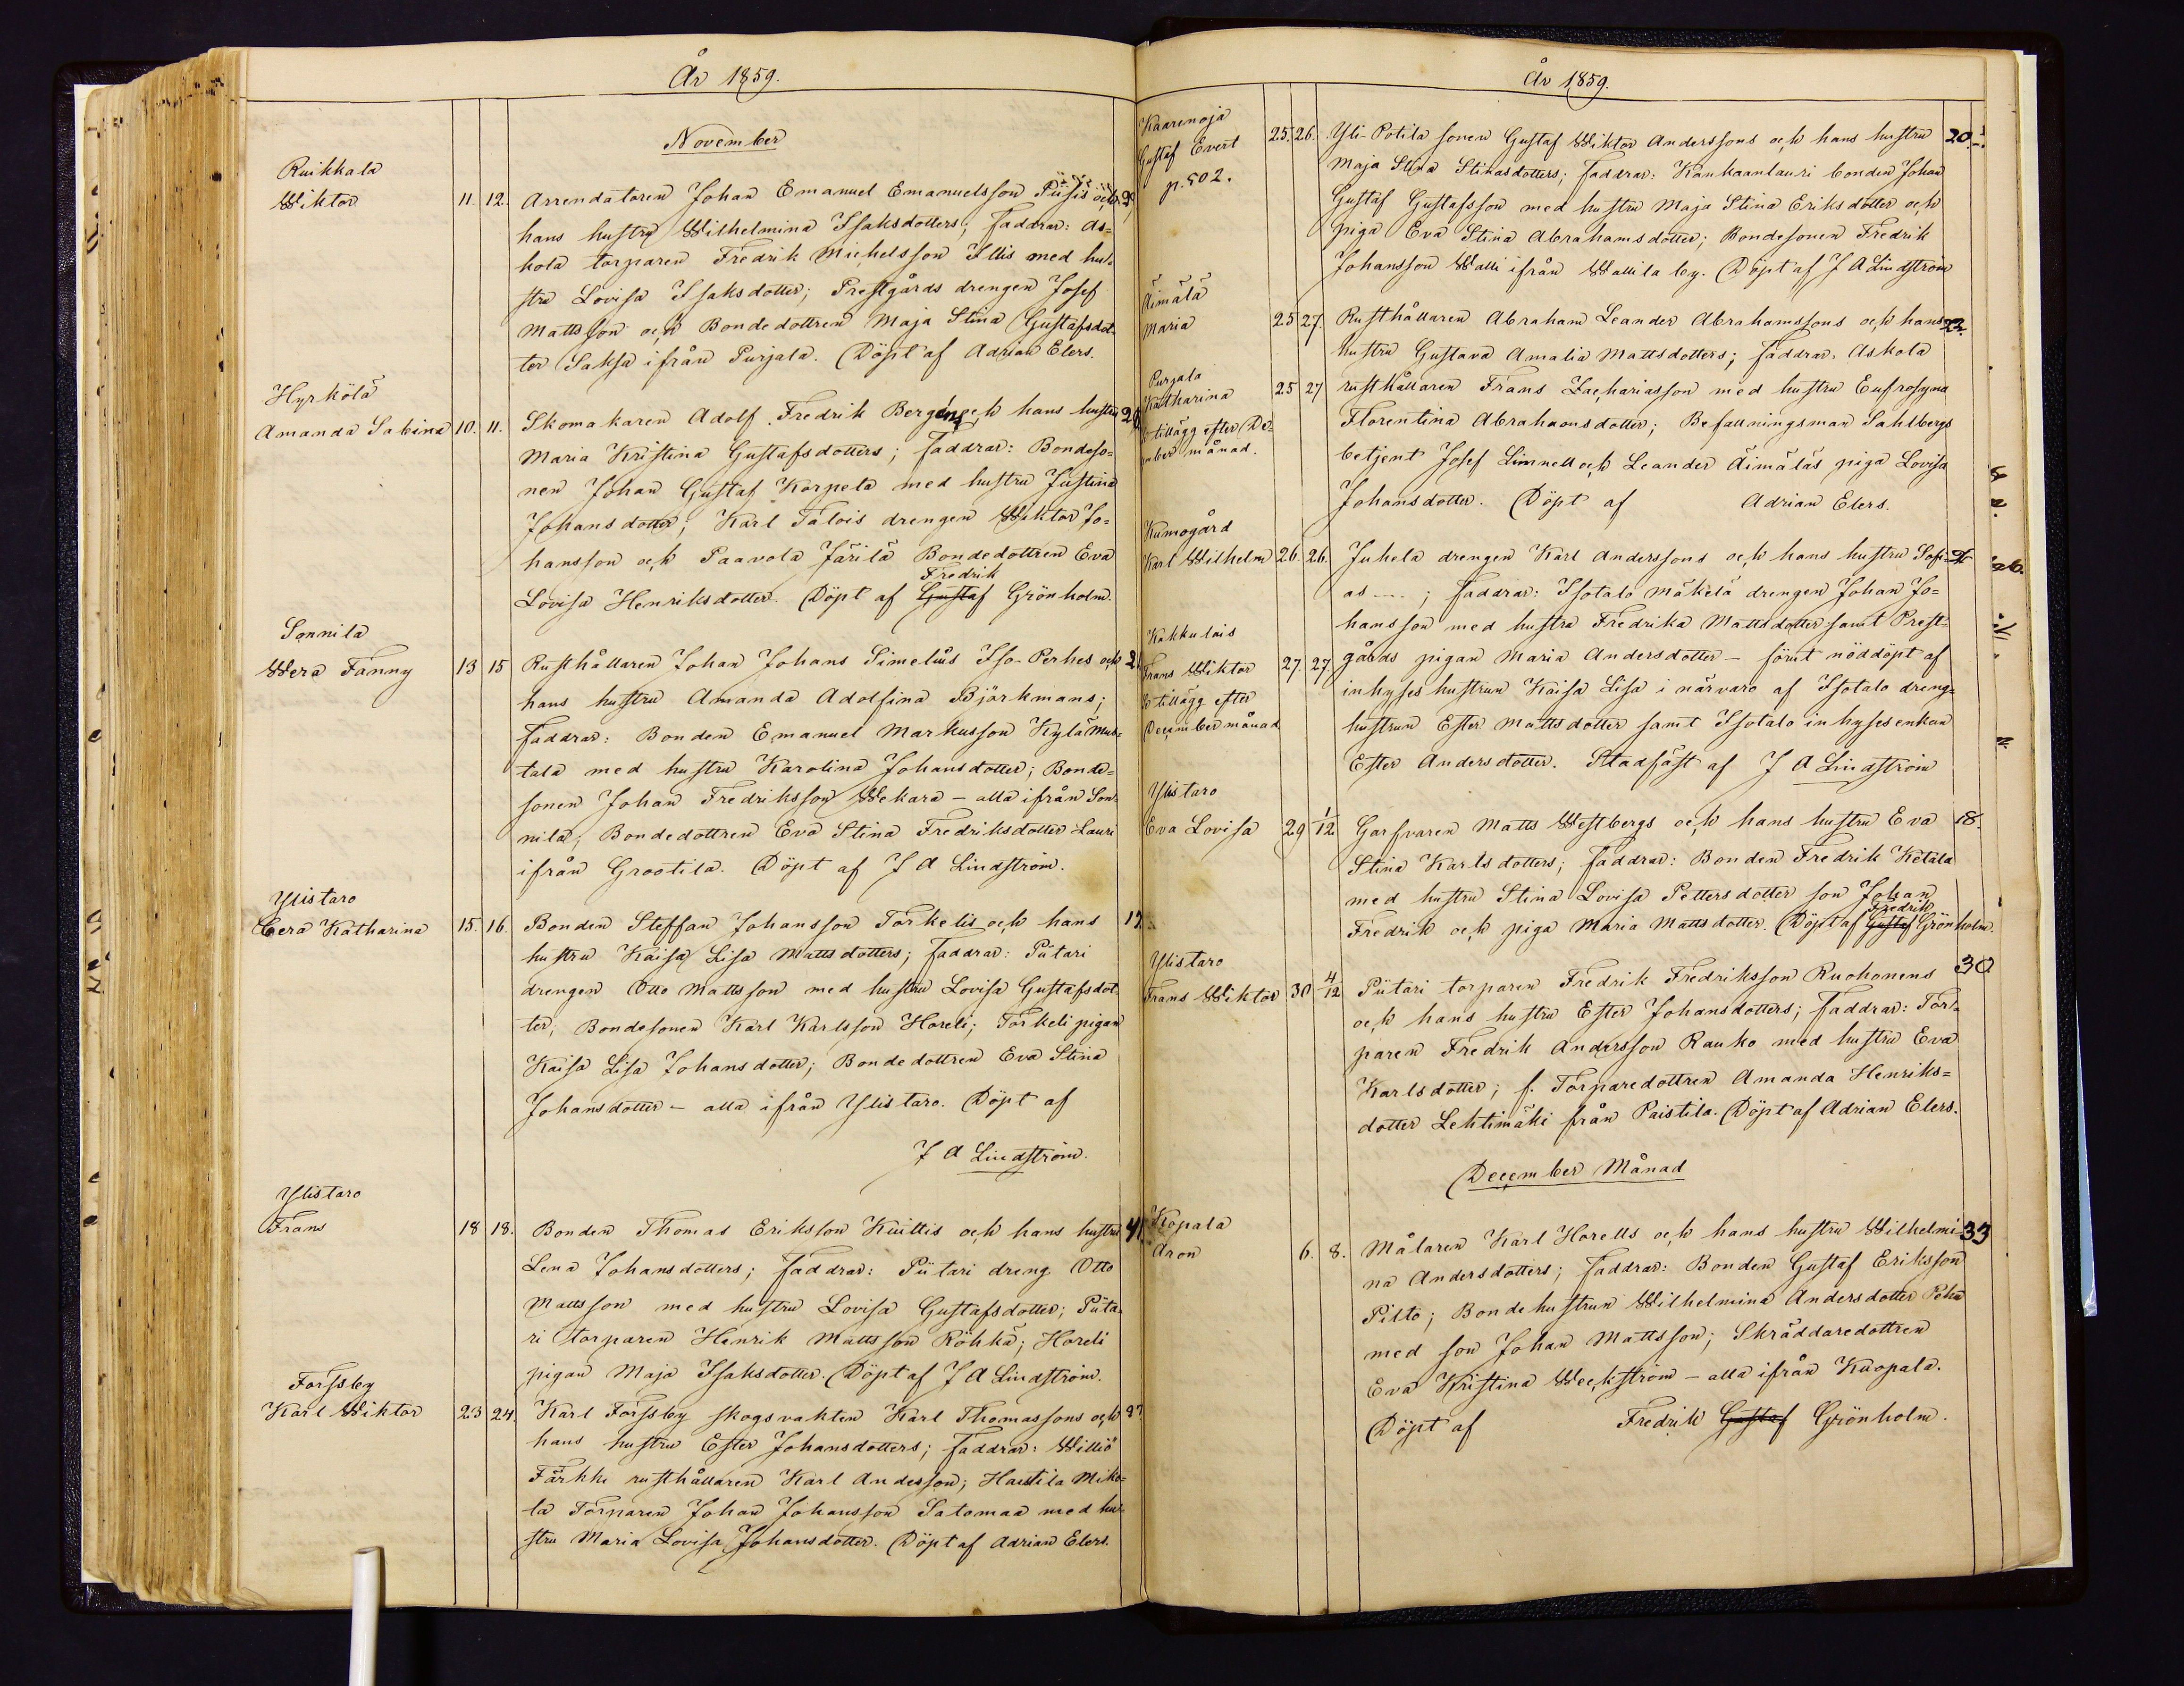 År 1859.
November
Ruikkala
Wiktor 11. 12. Arrendatoren Johan Emanuel Emanuelsson och
hans hustru Wilhelmina Isaksdotters; faddrar: As=
kola torparen Fredrik Michelsson Illis med hu=
stru Lovisa Isaksdotter; Prestgårds drengen Josef
Mattsson och Bondedottren Maja Stina Gustafsdot=
ter Saksa ifrån Purjala. Döpt af Adrian Elers.
Hyrkölä
Amanda Sabina 10. 11. Skomakaren Adolf Fredrik Bergéns och hans hustru
Maria Kristina Gustafsdotters; faddrar: Bondeso=
nen Johan Gustaf Korpela med hustru Justina
Johansdotter; Karl Talois drengen Wiktor Jo=
hansson och Paavola Järilä Bondedottren Eva
Fredrik
Lovisa Henriksdotter. Döpt af Gustaf Grönholm.
Sonnila
Wera Fanny 13 15 Rusthållaren Johan Johans Simelius Iso-Perhes och 21
hans hustru Amanda Adolfina Björkmans;
faddrar: Bonden Emanuel Markusson Kylä Mus=
tala med hustru Karolina Johansdotter; Bonde=
sonen Johan Fredriksson Wekara – alla ifrån Son=
nila; Bondedottren Eva Stina Fredriksdotter Lauri
ifrån Grootila. Döpt af J A Lindström.
Ylistaro
Cera Katharina 15. 16. Bonden Steffan Johansson Torkelis och hans 19
hustru Kaisa Lisa Mattsdotters; faddrar: Piitari
drengen Otto Mattsson med hustru Lovisa Gustafsdot=
ter; Bondesonen Karl Karlsson Horeli; Torkeli pigan
Kaisa Lisa Johansdotter; Bondedottren Eva Stina
Johansdotter – alla ifrån Ylistaro. Döpt af
J A Lindström.
Ylistaro
Frans 18 18. Bonden Thomas Eriksson Kuittis och hans hustru 41
Lena Johansdotters; faddrar: Piitari dreng Otto
Mattsson med hustru Lovisa Gustafsdotter; Piita=
ri torparen Henrik Mattsson Röhkä; Horeli
pigan Maja Isaksdotter. Döpt af J A Lindström.
Forssby
Karl Wiktor 23 24. Karl Forssby skogsvakten Karl Thomassons och
hans hustru Ester Johansdotters; faddrar: Williö
Färkki rusthållaren Karl Andersson; Haistila Miko=
la Torparen Johan Johansson Salomaa med hu=
stru Maria Lovisa Johansdotter. Döpt af Adrian Elers.
År 1859.
Kaarenoja
Gustaf Evert 25. 26. Yli-Potila sonen Gustaf Wiktor Anderssons och hans hustru 20.
p. 502. Maja Stina Stinasdotters; faddrar: Kankaanlauri bonden Johan
Gustaf Gustafsson med hustru Maja Stina Eriksdotter och
piga Eva Stina Abrahamsdotter; Bondesonen Fredrik
Johansson Walli ifrån Wallila by. Döpt af J A Lindström
Äimälä
Maria 25 27. Rusthållaren Abraham Leander Abrahamssons och hans 22.
hustru Gustava Amalia Mattsdotters; faddrar. Askola
Purjala
Katharina 25 27 rusthållaren Frans Zachariasson med hustru Eufrosyna
tillägg efter De= Florentina Abrahamsdotter; Befallningsman Sahlbergs
månad. betjent Josef Limnell och Leander Äimäläs piga Lovisa
Johansdotter. Döpt af Adrian Elers.
Kumogård
Karl Wilhelm 26. 26. Juhela drengen Karl Anderssons och hans hustru Sofi=
as ---; faddrar: Isotalo Mäkelä drengen Johan Jo=
hansson med hustru Fredrika Mattsdotter samt Prest=
Kakkulais
Frans Wiktor 27. 27. gårds pigan Maria Andersdotter – förut nöddöpt af
tillägg efter inhyses hustrun Kaisa Lisa i närvaro af Isotalo dreng=
December månad hustrun Ester Mattsdotter samt Isotalo inhysesenkan
Ester Andersdotter. Stadfäst af J A Lindström
Ylistaro
Eva Lovisa 29 1/12 Garfvaren Matts Westbergs och hans hustru Eva 18.
Stina Karlsdotters; faddrar: Bonden Fredrik Ketala
med hustru Stina Lovisa Pettersdotter son Johan
Fredrik
Fredrik och piga Maria Mattsdotter. Döpt af Gustaf Grönholm.
Ylistaro
Frans Wiktor 30 4/12 Piitari torparen Fredrik Fredriksson Ruohonens 30
och hans hustru Ester Johansdotters; faddrar: Tor=
paren Fredrik Andersson Rauko med hustru Eva
Karlsdotter; f. Torparedottren Amanda Henriks=
dotter Lehtimäki från Paistila. Döpt af Adrian Elers.
December Månad
Kopala
Aron 6. 8. Målaren Karl Horells och hans hustru Wilhelmi= 33
na Andersdotters; faddrar: Bonden Gustaf Eriksson
Pilto; Bondehustrun Wilhelmina Andersdotter
med son Johan Mattsson; Skräddaredottren
Eva Kristina Weckström – alla ifrån Kuopala.
Döpt af Fredrik Gustaf Grönholm.